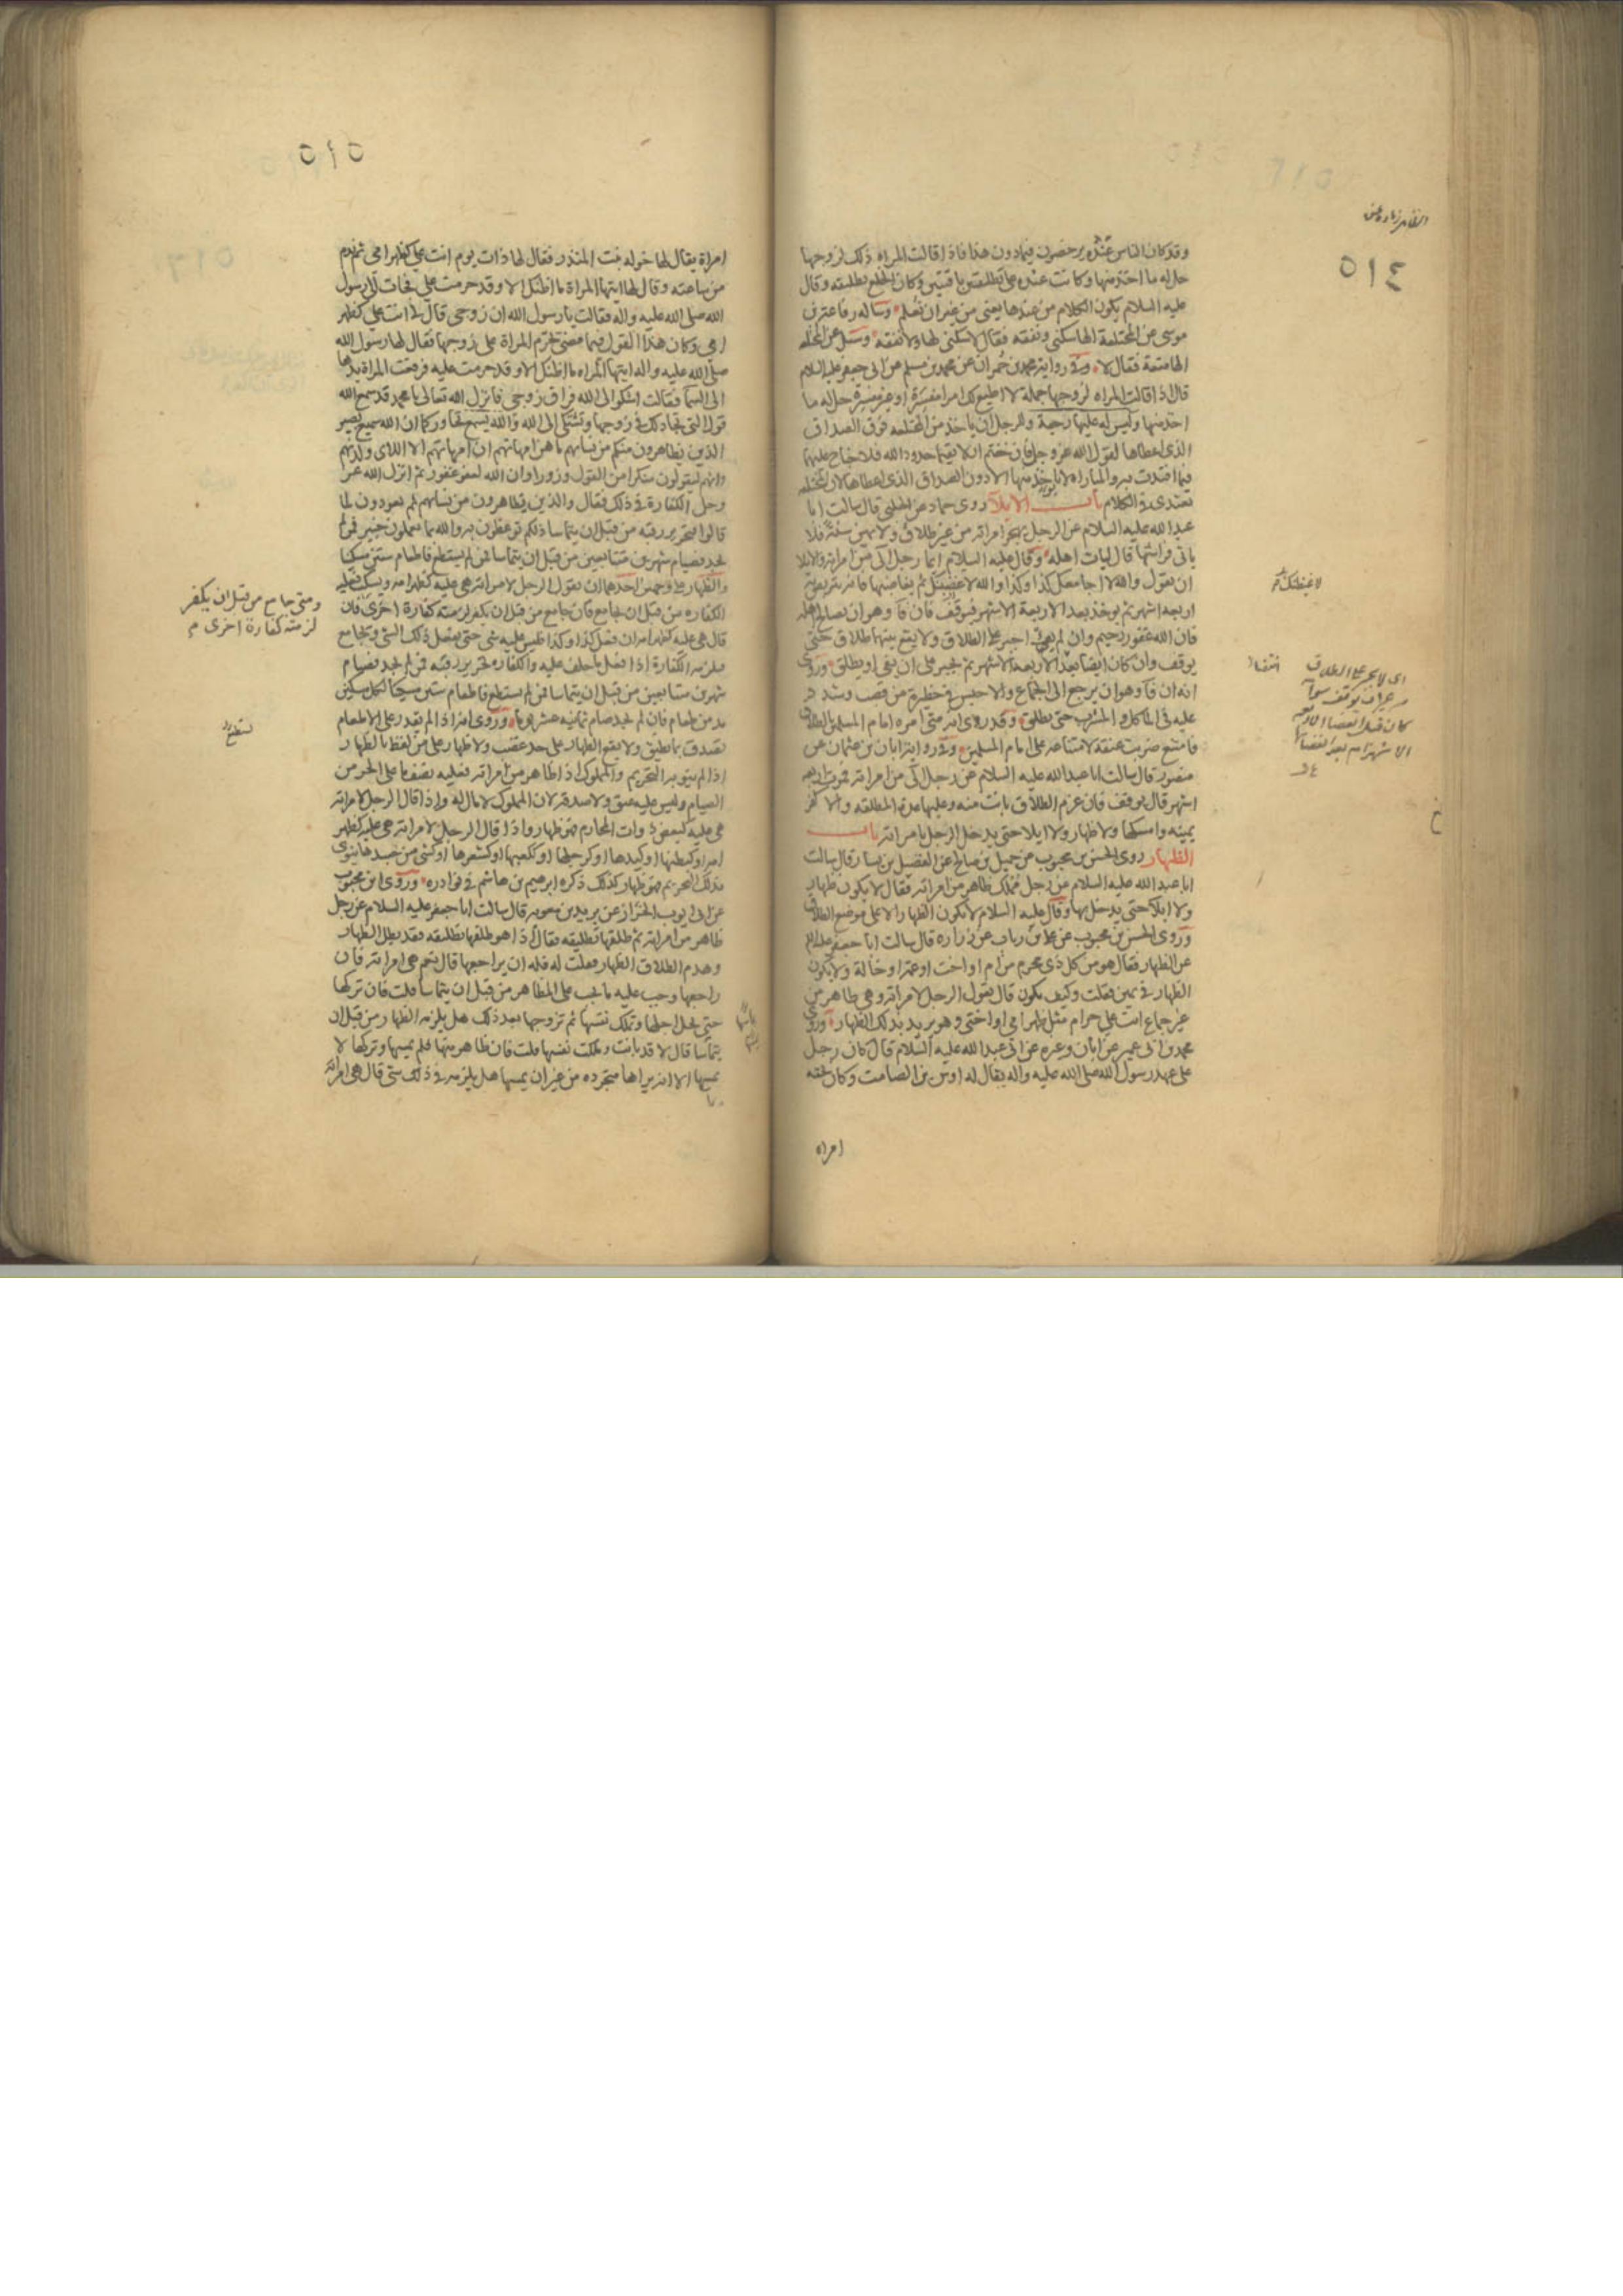 ٥١٤
وقد كان الناس عنده يرخصون فيما دون هذا فاذا قالت المراه ذلك لزوجها
حل له ما اخذ منها وكانت عنده على تطليقتين باقيتين وكان الخلع تطليقه وقال
عليه السلام يكون الكلام من عندها يعنى من غير ان تعلم وساله رفاعه بن
موسى عن المختلعة الها سكنى ونفقه فقال لا سكنى لها ولا نفقه وسئل عن المختلعه
الها متعة فقال لا وفى رواية محمد بن حمران عن محمد بن مسلم عن ابى جعفر عليه السلام
قال اذا قالت المراه لزوجها جملة لا اطيع لك امرا مفسرة او غير مفسرة حل له ما
اخذ منها وليس له عليها رجعة وللرجل ان ياخذ من المختلعه فوق الصداق
الذى اعطاها لقول الله عز وجل فان خفتم الا يقيما حدود الله فلا جناح عليهما
فيما افتدت به والمباراه لا يؤخذ منها الا دون الصداق الذى اعطاها لان المختلعه
تعتدى فى الكلام باب الايلاء روى حماد عن الحلبى قال سالت ابا
عبد الله عليه السلام عن الرجل يهجر امراته من غير طلاق ولا يمين سنة فلا
ياتى فراشها قال ليات اهله وقال عليه السلام ايما رجل الى من امراته والايلا
ان يقول والله لا اجامعك كذا وكذا والله لاغيضنك ثم يغاضبها فانه يتربص به
اربعه اشهر ثم يوخذ بعد الاربعة الاشهر فيوقف فان فا وهو ان يصالح اهله
فان الله غفور رحيم وان لم يفئ اجبر على الطلاق ولا يقع بينهما طلاق حتى
يوقف وان كان ايضا بعد الاربعة الاشهر ثم يجبر على ان يفى او يطلق وروى
انه ان فا وهو ان يرجع الى الجماع والا حبس فى حظيرة من قصب وشدد
عليه فى الماكل والمشرب حتى يطلق وقد روى انه متى امره امام المسلمين بالطلاق
فامتنع ضربت عنقه لامتناعه على امام المسلمين وفى رواية ابان بن عثمان عن
منصور قال سالت ابا عبد الله عليه السلام عن رجل الى من امراته فمرت اربعه
اشهر قال يوقف فان عزم الطلاق بانت منه وعليها عدة المطلقه والا كفر
يمينه وامسكها ولا ظهار ولا ايلا حتى يدخل الرجل بامراته باب
الظهار روى الحسن بن محبوب عن جميل بن صالح عن الفضيل بن يسار قال سالت
ابا عبد الله عليه السلام عن رجل مملك ظاهر من امراته فقال لا يكون ظهار
ولا ايلا حتى يدخل بها وقال عليه السلام لا يكون الظهار الا على موضع الطلاق
وروى الحسن بن محبوب عن على بن رياب عن زراره قال سالت ابا جعفر عليه السلام
عن الظهار فقال هو من كل ذى محرم من ام او اخت او عمة او خالة ولا يكون
الظهار فى يمين فقلت وكيف يكون قال يقول الرجل لامراته وهى طاهر من
غير جماع انت على حرام مثل ظهر امى او اختى وهو يريد بذلك الظهار وروى
محمد بن ابى عمير عن ابان وغيره عن ابى عبد الله عليه السلام قال كان رجل
على عهد رسول الله صلى الله عليه واله يقال له اوس بن الصامت وكان تحته
امراه
لاغيظنك
انقضاء
اى لا يجبر على الطلاق
٥١٥
امراة يقال لها خوله بنت المنذر فقال لها ذات يوم انت على كظهر امى ثم ندم
من ساعته وقال لها ايتها المراة ما اظنك الا وقد حرمت على فجات الى رسول
الله صلى الله عليه واله فقالت يا رسول الله ان زوجى قال لى انت على كظهر
امى وكان هذا القول فيما مضى تحرم المراة على زوجها فقال لها رسول الله
صلى الله عليه واله ايتها المراه ما اظنك الا وقد حرمت عليه فرفعت المراة يدها
الى السماء فقالت اشكو الى الله فراق زوجى فانزل الله تعالى يا محمد قد سمع الله
قول التى تجادلك فى زوجها وتشتكى الى الله والله يسمع تحاوركما ان الله سميع بصير
الذين يظاهرون منكم من نسائهم ما هن امهاتهم ان امهاتهم الا اللاى ولدنهم
وانهم ليقولون منكرا من القول وزورا وان الله لعفو غفور ثم انزل الله عز
وجل الكفارة فى ذلك فقال والذين يظاهرون من نسائهم ثم يعودون لما
قالوا فتحرير رقبه من قبل ان يتماسا ذلكم توعظون به والله بما تعملون خبير فمن لم
يجد فصيام شهرين متتابعين من قبل ان يتماسا فمن لم يستطع فاطعام ستين مسكينا
والظهار على وجهين احدهما ان يقول الرجل لامراته هى عليه كظهر امه ويسكت فعليه
الكفاره من قبل ان يجامع فان جامع من قبل ان يكفر لزمته كفارة اخرى فان
قال هى عليه كظهر امه ان فعل كذا وكذا فليس عليه شى حتى يفعل ذلك الشى ويجامع
فيلزمه الكفارة اذا فعل ما حلف عليه والكفاره تحرير رقبة فمن لم يجد فصيام
شهرين متتابعين من قبل ان يتماسا فمن لم يستطع فاطعام ستين مسكينا لكل مسكين
مد من طعام فان لم يجد صام ثمانية عشر يوما وروى انه اذا لم يقدر على الاطعام
تصدق بما يطيق ولا يقع الظهار على حد غضب ولا ظهار على من لفظ بالظهار
اذا لم ينو به التحريم والمملوك اذا ظاهر من امراته فعليه نصف ما على الحر من
الصيام وليس عليه عتق ولا صدقه لان المملوك لا مال له واذا قال الرجل لامراته
هى عليه كبعض ذوات المحارم فهو ظهار واذا قال الرجل لامراته هى عليه كظهر
امه او كبطنها او كيدها او كرجلها او ككعبها او كشعرها او كشى من جسدها ينوى
بذلك التحريم فهو ظهار كذلك ذكره ابرهيم بن هاشم فى نوادره وروى ابن محبوب
عن ابى ايوب الخزاز عن يزيد بن معويه قال سالت ابا جعفر عليه السلام عن رجل
ظاهر من امراته ثم طلقها تطليقه فقال اذا هو طلقها تطليقه فقد بطل الظهار
وهدم الطلاق الظهار فقلت له فله ان يراجعها قال نعم هى امراته فان
راجعها وجب عليه ما يجب على المظاهر من قبل ان يتماسا قلت فان تركها
حتى يحل اجلها وتملك نفسها ثم تزوجها بعد ذلك هل يلزمه الظهار من قبل ان
يتماسا قال لا قد بانت وملكت نفسها قلت فان ظاهر منها فلم يمسها وتركها لا
يمسها الا انه يراها متجرده من غير ان يمسها هل يلزمه فى ذلك شى قال هى امراته
ومتى جامع من قبل ان يكفر
لزمته كفارة اخرى م
يستطع